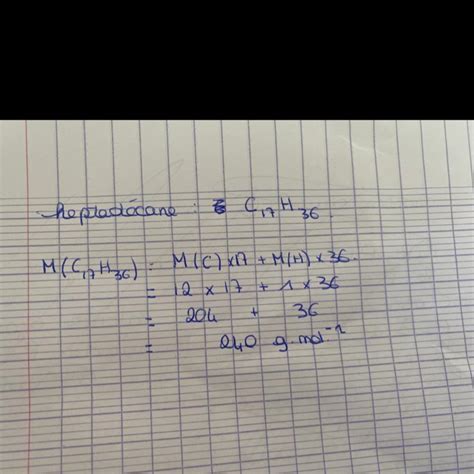 heptadécane : C₁₇H₃₆.
M(C₁₇H₃₆) = M(C) x 17 + M(H) x 36.
= 12 x 17 + 1 x 36
= 204 + 36
= 240 g.mol⁻¹